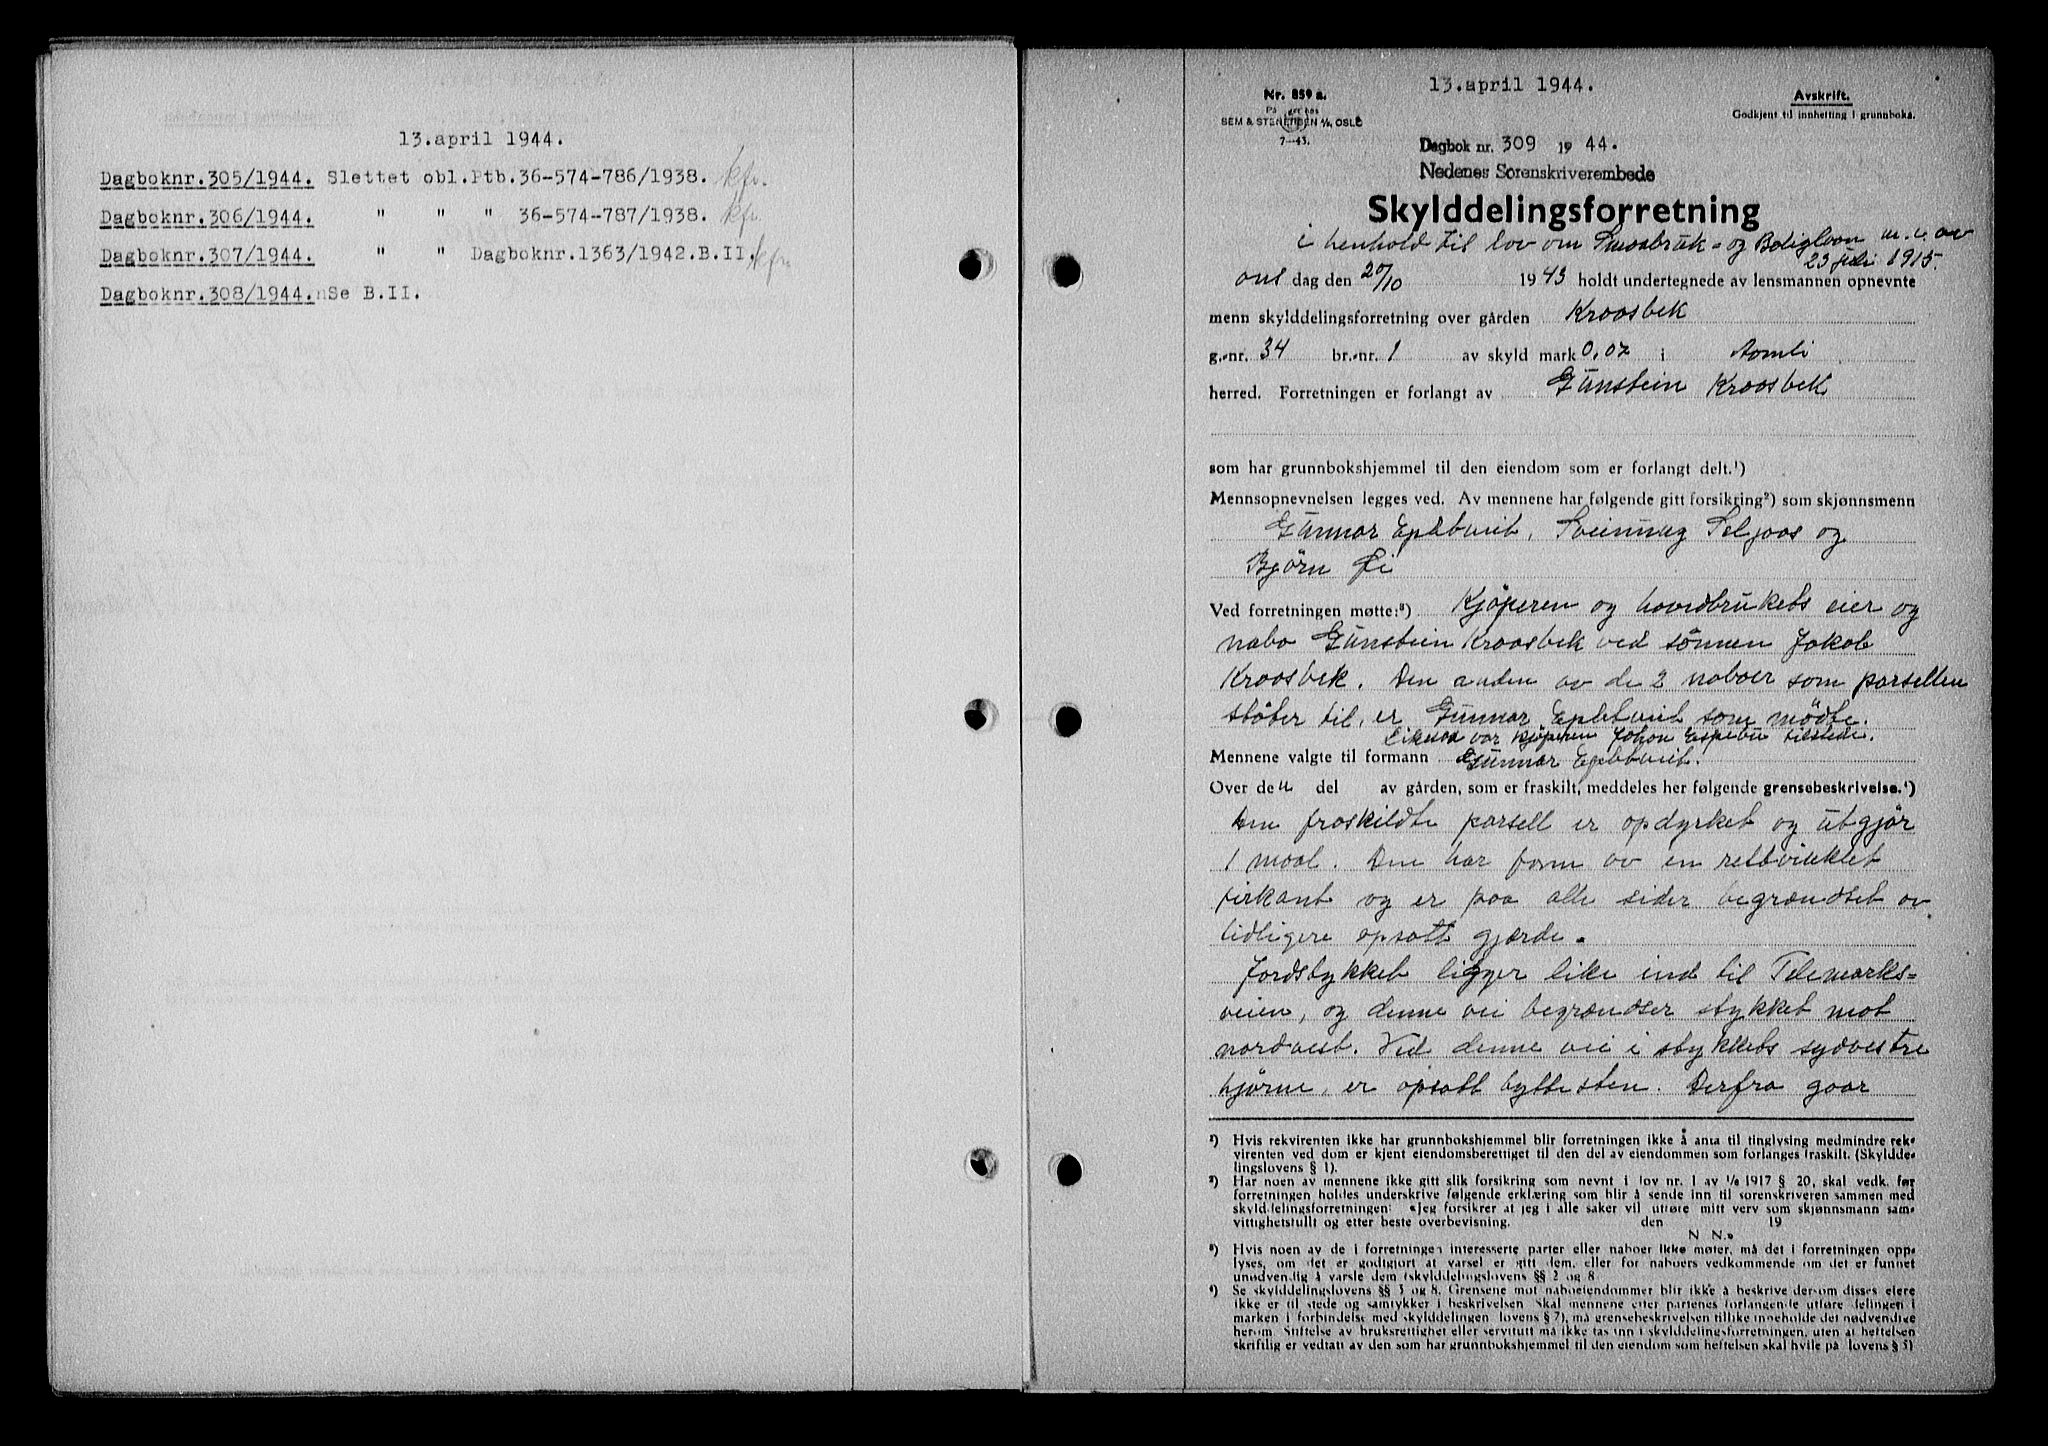 13.april 1944.
Dagboknr.305/1944. Slettet obl.Ptb.36-574-786/1938. kfr.
Dagboknr.306/1944. " " " 36-574-787/1938. kfr.
Dagboknr.307/1944. " " Dagboknr.1363/1942.B.II. kfr.
Dagboknr.308/1944. Se B.II.
13.april 1944.
Nr. 859 a.
På lager hos
SEM & STENERSEN A/S, OSLO
7—43.
Avskrift.
Godkjent til innhefting i grunnboka.
Dagbok nr. 309 1944.
Nedenes Sorenskriverembede
Skylddelingsforretning
i henhold til lov om Smaabruk- og Boliglaan m.v. av
23 juli 1915.
ons dag den 20/10 1943 holdt undertegnede av lensmannen opnevnte
menn skylddelingsforretning over gården Kroosbek
g.-nr. 34 br.-nr. 1 av skyld mark 0,02 i Aamli
herred. Forretningen er forlangt av Gunstein Kroosbek
som har grunnbokshjemmel til den eiendom som er forlangt delt.¹)
Mennsopnevnelsen legges ved. Av mennene har følgende gitt forsikring²) som skjønnsmenn
Gunnar Epletveit, Sveinung Seljaas og
Bjørn Øi
Ved forretningen møtte:³) Kjøperen og hovedbrukets eier og
nabo Gunstein Kroosbek ved sønnen Jakob
Kroosbek. Den anden av de 2 naboer som parsellen
støter til, er Gunnar Epletveit som mødte.
Likesaa var kjøperen Johan Espebu tilstede.
Mennene valgte til formann Gunnar Epletveit.
Over den del av gården, som er fraskilt, meddeles her følgende grensebeskrivelse.⁴)
Den fraskildte parsell er opdyrket og utgjør
1 maal. Den har form av en rettvinklet
firkant og er paa alle sider begrændset av
tidligere opsatt gjærde.
Jordstykket ligger like ind til Telemarks-
veien, og denne vei begrændser stykket mot
nordvest. Ved denne vei i stykkets sydvestre
hjørne, er opsatt byttesten. Derfra gaar
¹) Hvis rekvirenten ikke har grunnbokshjemmel blir forretningen ikke å anta til tinglysing medmindre rek-
virenten ved dom er kjent eiendomsberettiget til den del av eiendommen som forlanges fraskilt. (Skyldde-
lingslovens § 1).
²) Har noen av mennene ikke gitt slik forsikring som nevnt i lov nr. 1 av 1/6 1917 § 20, skal vedk. før
forretningen holdes underskrive følgende erklæring som blir å sende inn til sorenskriveren sammen med
skylddelingsforretningen: «Jeg forsikrer at jeg i alle saker vil utføre mitt verv som skjønnsmann sam-
vittighetsfullt og etter beste overbevisning. den 19
N. N.»
³) Hvis noen av de i forretningen interesserte parter eller naboer ikke møter, må det i forretningen opp-
lyses, om det er godtgjort at varsel er gitt dem, eller for naboers vedkommende om det er funnet
unødvendig å varsle dem (skylddelingslovens §§ 2 og 8.
⁴) Se skylddelingslovens §§ 3 og 8. Grensene mot naboeiendommer blir ikke å beskrive dersom disses eiere
ikke er til stede og samtykker i beskrivelsen Skal mennene etter partenes forlangende utføre delingen i
marken i forbindelse med skylddelingen lovens § 7), må grensebeskrivelsen tillike inneholde det nødvendige
herom. Stiftelse av bruksrettighet eller servitutt må ikke tas inn i skylddelingsforretningen, uten at heftelsen
skriftlig er vedtatt av den som har grunnbokshjemmel til den eiendom som heftelsen skal hvile på lovens § 5)